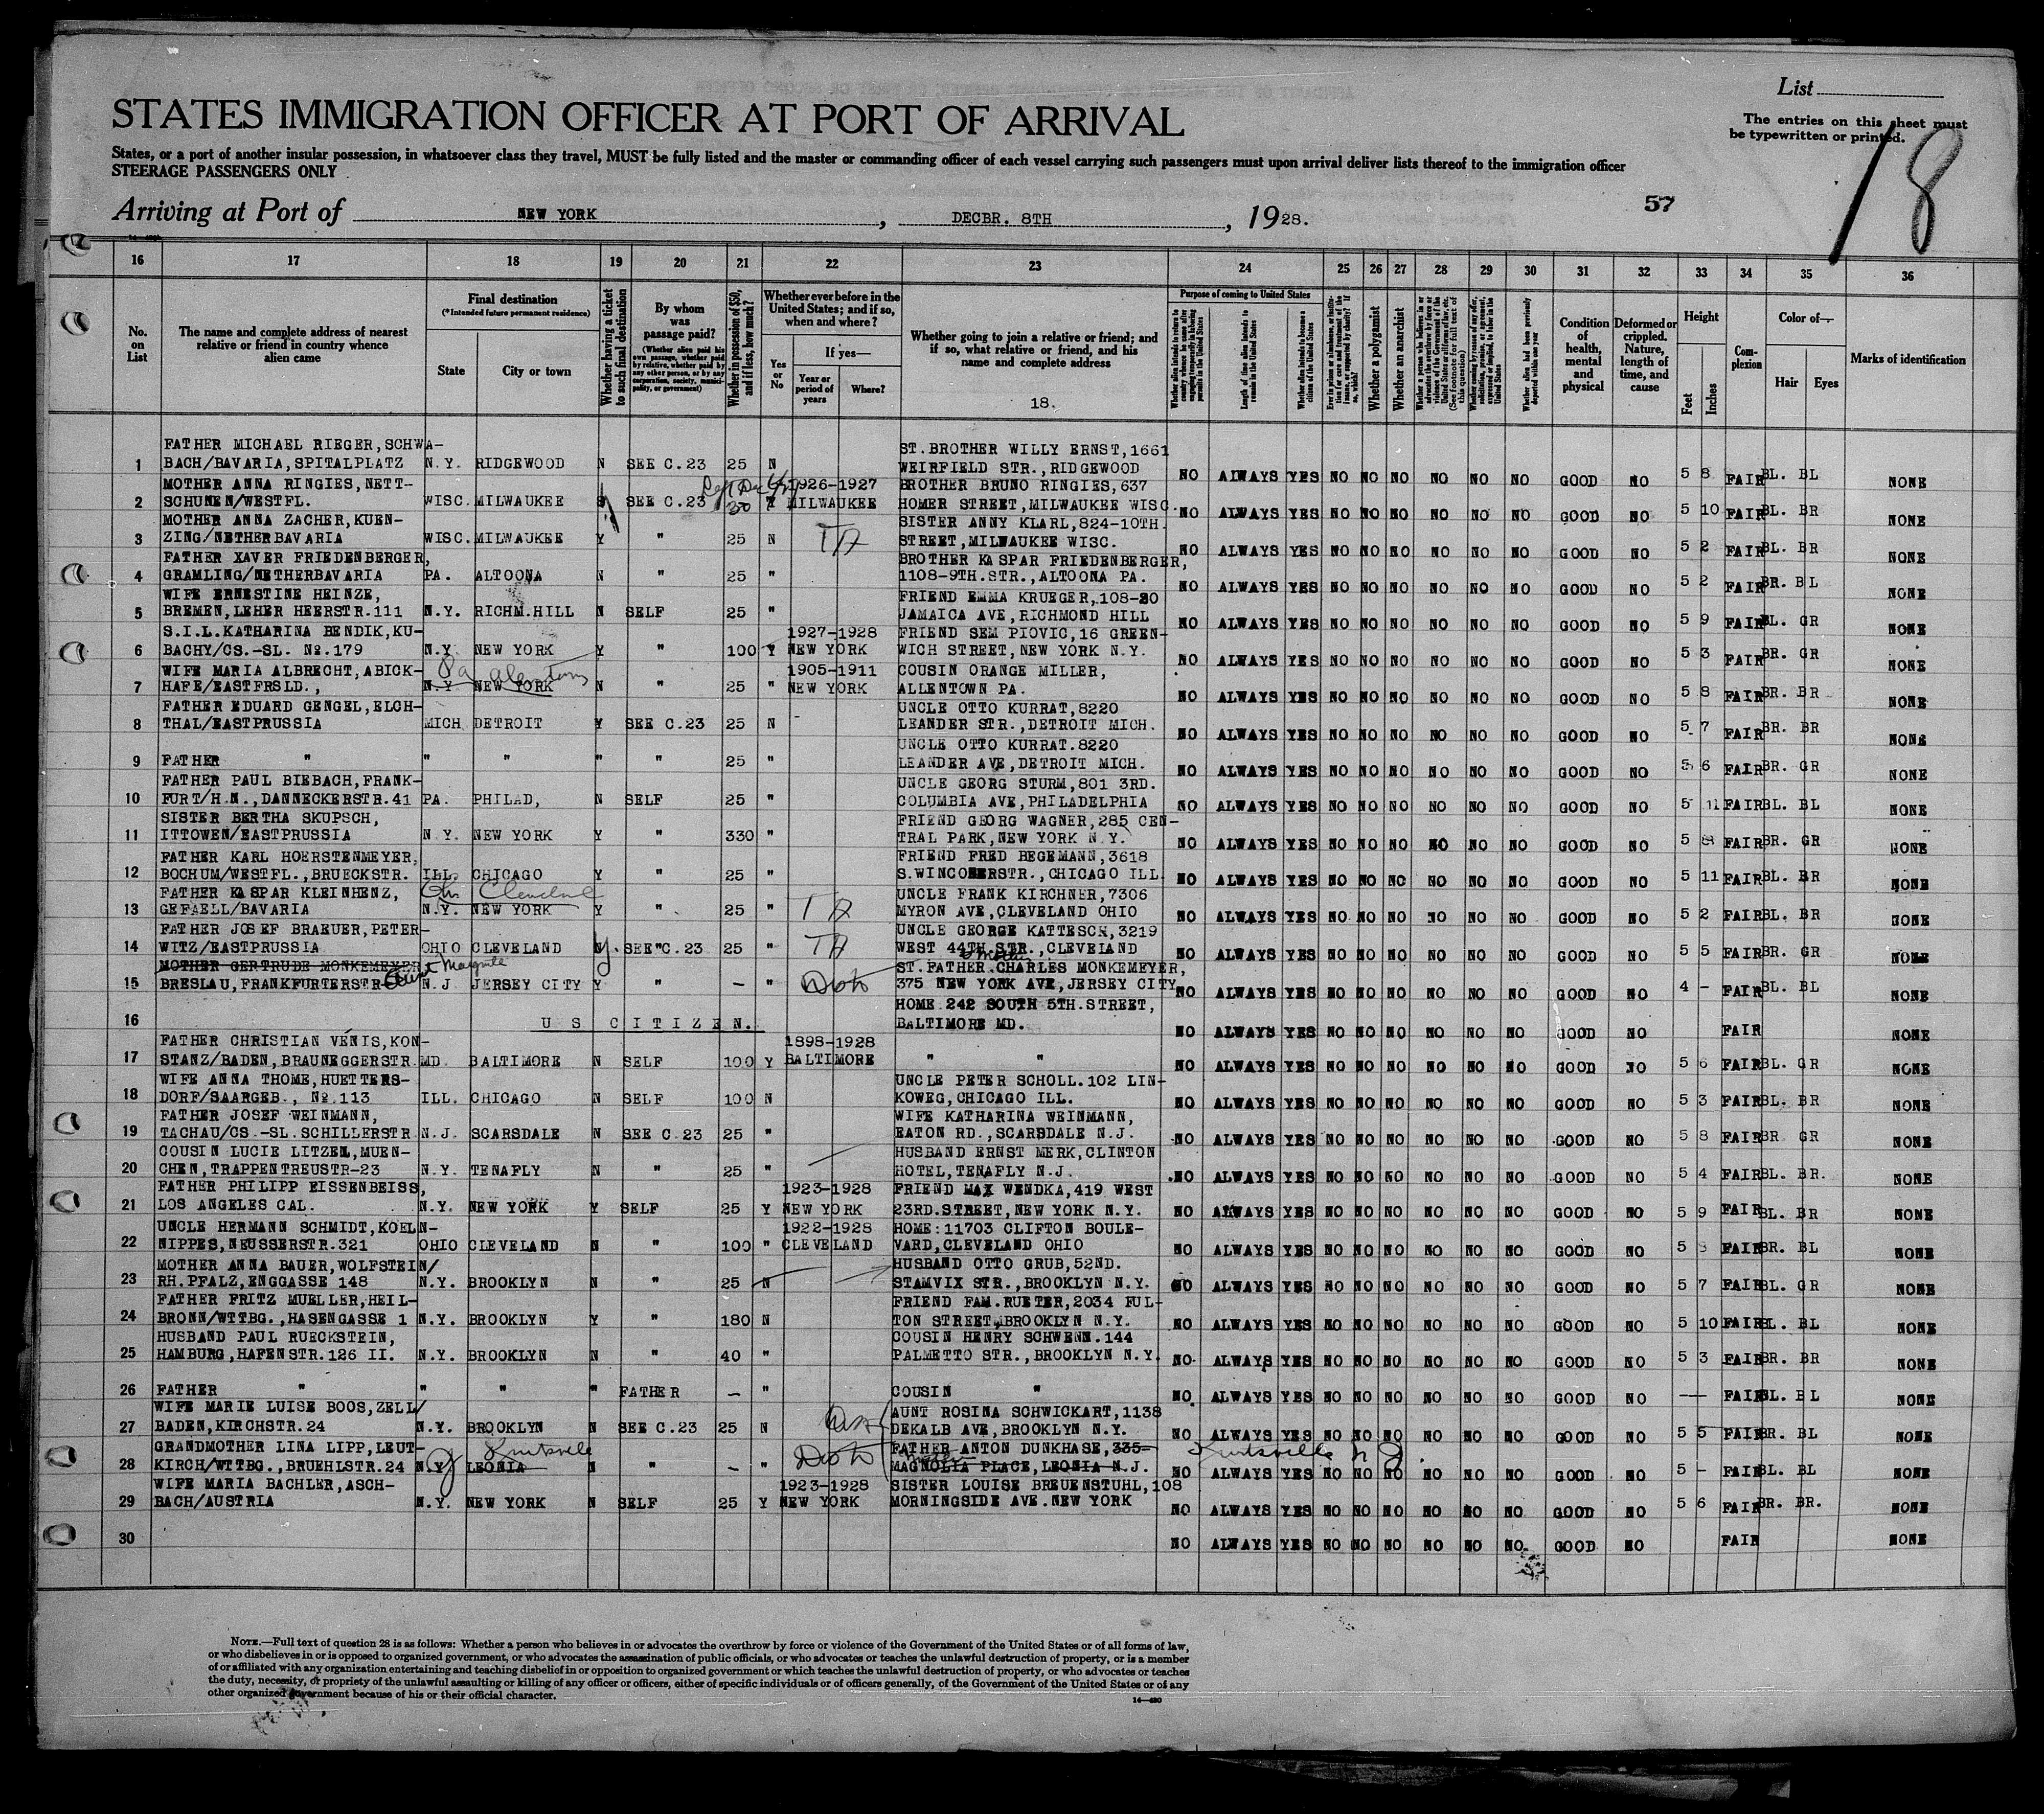 List
The entries on this sheet must
be typewritten or printed.
18
STATES IMMIGRATION OFFICER AT PORT OF ARRIVAL
States, or a port of another insular possession, in whatsoever class they travel, MUST be fully listed and the master or commanding officer of each vessel carrying such passengers must upon arrival deliver lists thereof to the immigration officer
STEERAGE PASSENGERS ONLY
57
Arriving at Port of NEW YORK, DECBR. 8TH, 1928.
16 17 18 19 20 21 22 23 24 25 26 27 28 29 30 31 32 33 34 35 36
No. on List
The name and complete address of nearest relative or friend in country whence alien came
Final destination
(*Intended future permanent residence)
State
City or town
Whether having a ticket to such final destination
By whom was passage paid?
(Whether alien paid his own passage, whether paid by relative, whether paid by any other person, or by any corporation, society, municipality, or government)
Whether in possession of $50, and if less, how much?
Whether ever before in the United States; and if so, when and where?
Yes or No
If yes—
Year or period of years
Where?
Whether going to join a relative or friend; and if so, what relative or friend, and his name and complete address
18.
Purpose of coming to United States
Length of time alien intends to remain in the United States
Whether alien intends to become a citizen of the United States
Whether a polygamist
Whether an anarchist
Condition of health, mental and physical
Deformed or crippled. Nature, length of time, and cause
Height
Feet
Inches
Complexion
Color of—
Hair
Eyes
Marks of identification
FATHER MICHAEL RIEGER, SCHWA- ST. BROTHER WILLY ERNST, 1661
1 BACH/BAVARIA, SPITALPLATZ N.Y. RIDGEWOOD N SEE C.23 25 N WEIRFIELD STR., RIDGEWOOD NO ALWAYS YES NO NO NO NO NO NO GOOD NO 5 8 FAIR BL. BL NONE
MOTHER ANNA RINGIES, NETT- 1926-1927 BROTHER BRUNO RINGIES, 637
2 SCHUNEN/WESTFL. WISC. MILWAUKEE SEE C.23 30 Y MILWAUKEE HOMER STREET, MILWAUKEE WISC. NO ALWAYS YES NO NO NO NO NO NO GOOD NO 5 10 FAIR BL. BR NONE
MOTHER ANNA ZACHER, KUEN- SISTER ANNY KLARL, 824-10TH.
3 ZING/NETHERBAVARIA WISC. MILWAUKEE Y " 25 N STREET, MILWAUKEE WISC. NO ALWAYS YES NO NO NO NO NO NO GOOD NO 5 2 FAIR BL. BR NONE
FATHER XAVER FRIEDENBERGER, BROTHER KASPAR FRIEDENBERGER,
4 GRAMLING/NETHERBAVARIA PA. ALTOONA N " 25 " 1108-9TH.STR., ALTOONA PA. NO ALWAYS YES NO NO NO NO NO NO GOOD NO 5 2 FAIR BR. BL NONE
WIFE ERNESTINE HEINZE, FRIEND EMMA KRUEGER, 108-20
5 BREMEN, LEHER HEERSTR.111 N.Y. RICHM.HILL N SELF 25 " JAMAICA AVE, RICHMOND HILL NO ALWAYS YES NO NO NO NO NO NO GOOD NO 5 9 FAIR BL. GR NONE
S.I.L. KATHARINA BENDIK, KU- 1927-1928 FRIEND SEM PIOVIC, 16 GREEN-
6 BACHY/CS.-SL. No.179 N.Y. NEW YORK Y " 100 Y NEW YORK WICH STREET, NEW YORK N.Y. NO ALWAYS YES NO NO NO NO NO NO GOOD NO 5 3 FAIR BR. GR NONE
WIFE MARIA ALBRECHT, ABICK- Pa Allentown 1905-1911 COUSIN ORANGE MILLER,
7 HAFE/EASTFRSLD., N.Y. NEW YORK N " 25 " NEW YORK ALLENTOWN PA. NO ALWAYS YES NO NO NO NO NO NO GOOD NO 5 8 FAIR BR. BR NONE
FATHER EDUARD GENGEL, ELCH- UNCLE OTTO KURRAT, 8220
8 THAL/EASTPRUSSIA MICH DETROIT Y SEE C.23 25 N LEANDER STR., DETROIT MICH. NO ALWAYS YES NO NO NO NO NO NO GOOD NO 5 7 FAIR BR. BR NONE
UNCLE OTTO KURRAT. 8220
9 FATHER " " " " " 25 " LEANDER AVE, DETROIT MICH. NO ALWAYS YES NO NO NO NO NO NO GOOD NO 5 6 FAIR BR. GR NONE
FATHER PAUL BIEBACH, FRANK- UNCLE GEORG STURM, 801 3RD.
10 FURT/H.N., DANNECKERSTR.41 PA. PHILAD, N SELF 25 " COLUMBIA AVE, PHILADELPHIA NO ALWAYS YES NO NO NO NO NO NO GOOD NO 5 11 FAIR BL. BL NONE
SISTER BERTHA SKUPSCH, FRIEND GEORG WAGNER, 285 CEN-
11 ITTOWEN/EASTPRUSSIA N.Y. NEW YORK Y " 330 " TRAL PARK, NEW YORK N.Y. NO ALWAYS YES NO NO NO NO NO NO GOOD NO 5 FAIR BR. GR NONE
FATHER KARL HOERSTENMEYER, FRIEND FRED BEGEMANN, 3618
12 BOCHUM/WESTFL., BRUECKSTR. ILL. CHICAGO Y " 25 " S.WINCONERSTR., CHICAGO ILL. NO ALWAYS YES NO NO NO NO NO NO GOOD NO 5 11 FAIR BL. BR NONE
FATHER KASPAR KLEINHENZ, Oh Cleveland UNCLE FRANK KIRCHNER, 7306
13 GEFAELL/BAVARIA N.Y. NEW YORK Y " 25 " MYRON AVE, CLEVELAND OHIO NO ALWAYS YES NO NO NO NO NO NO GOOD NO 5 2 FAIR BL. BR NONE
FATHER JOSEF BRAEUER, PETER- UNCLE GEORGE KATTESCH, 3219
14 WITZ/EASTPRUSSIA OHIO CLEVELAND y. SEE C.23 25 " WEST 44TH STR., CLEVELAND NO ALWAYS YES NO NO NO NO NO NO GOOD NO 5 5 FAIR BR. GR NONE
MOTHER GERTRUDE MONKEMEYER Aunt ST. FATHER CHARLES MONKEMEYER,
15 BRESLAU, FRANKFURTERSTR N.J JERSEY CITY Y " — " 375 NEW YORK AVE, JERSEY CITY NO ALWAYS YES NO NO NO NO NO NO GOOD NO 4 - FAIR BL. BL NONE
HOME 242 SOUTH 5TH.STREET,
16 U S CITIZEN. BALTIMORE MD. NO ALWAYS YES NO NO NO NO NO NO GOOD NO FAIR NONE
FATHER CHRISTIAN VENIS, KON- 1898-1928
17 STANZ/BADEN, BRAUNEGGERSTR. MD. BALTIMORE N SELF 100 Y BALTIMORE " " NO ALWAYS YES NO NO NO NO NO NO GOOD NO 5 6 FAIR BL. GR NONE
WIFE ANNA THOME, HUETTERS- UNCLE PETER SCHOLL. 102 LIN-
18 DORF/SAARGEB., No.113 ILL. CHICAGO N SELF 100 N KOWEG, CHICAGO ILL. NO ALWAYS YES NO NO NO NO NO NO GOOD NO 5 3 FAIR BL. BR NONE
FATHER JOSEF WEINMANN, WIFE KATHARINA WEINMANN,
19 TACHAU/CS.-SL. SCHILLERSTR N.J. SCARSDALE N SEE C.23 25 " EATON RD., SCARSDALE N.J. NO ALWAYS YES NO NO NO NO NO NO GOOD NO 5 8 FAIR BR GR NONE
COUSIN LUCIE LITZEL, MUEN- HUSBAND ERNST MERK, CLINTON
20 CHEN, TRAPPENTREUSTR-23 N.Y. TENAFLY N " 25 " HOTEL, TENAFLY N.J. NO ALWAYS YES NO NO NO NO NO NO GOOD NO 5 4 FAIR BL. BR. NONE
FATHER PHILIPP EISSENBEISS, 1923-1928 FRIEND MAX WENDKA, 419 WEST
21 LOS ANGELES CAL. N.Y. NEW YORK Y SELF 25 Y NEW YORK 23RD.STREET, NEW YORK N.Y. NO ALWAYS YES NO NO NO NO NO NO GOOD NO 5 9 FAIR BL. BR NONE
UNCLE HERMANN SCHMIDT, KOELN- 1922-1928 HOME: 11703 CLIFTON BOULE-
22 NIPPES, NEUSSERSTR.321 OHIO CLEVELAND N " 100 " CLEVELAND VARD, CLEVELAND OHIO NO ALWAYS YES NO NO NO NO NO NO GOOD NO 5 FAIR BR. BL NONE
MOTHER ANNA BAUER, WOLFSTEIN/ HUSBAND OTTO GRUB, 52ND.
23 RH.PFALZ, ENGGASSE 148 N.Y. BROOKLYN N " 25 N STAMVIX STR., BROOKLYN N.Y. NO ALWAYS YES NO NO NO NO NO NO GOOD NO 5 7 FAIR BL. GR NONE
FATHER FRITZ MUELLER, HEIL- FRIEND FAM. RUETER, 2034 FUL-
24 BRONN/WTTBG., HASENGASSE 1 N.Y. BROOKLYN Y " 180 N TON STREET, BROOKLYN N.Y. NO ALWAYS YES NO NO NO NO NO NO GOOD NO 5 10 FAIR BL. BL NONE
HUSBAND PAUL RUECKSTEIN, COUSIN HENRY SCHWENN. 144
25 HAMBURG, HAFENSTR.126 II. N.Y. BROOKLYN N " 40 " PALMETTO STR., BROOKLYN N.Y. NO ALWAYS YES NO NO NO NO NO NO GOOD NO 5 3 FAIR BR. BR NONE
26 FATHER " " " " FATHER — " COUSIN " NO ALWAYS YES NO NO NO NO NO NO GOOD NO — FAIR BL. BL NONE
WIFE MARIE LUISE BOOS, ZELL/ AUNT ROSINA SCHWICKART, 1138
27 BADEN, KIRCHSTR.24 N.Y. BROOKLYN N SEE C.23 25 N DEKALB AVE, BROOKLYN N.Y. NO ALWAYS YES NO NO NO NO NO NO GOOD NO 5 5 FAIR BR. BL NONE
GRANDMOTHER LINA LIPP, LEUT- FATHER ANTON DUNKHASE, 335-
28 KIRCH/WTTBG., BRUEHLSTR.24 N.Y. LEONIA N " — " MAGNOLIA PLACE, LEONIA N.J. NO ALWAYS YES NO NO NO NO NO NO GOOD NO 5 - FAIR BL. BL NONE
WIFE MARIA BACHLER, ASCH- 1923-1928 SISTER LOUISE BREUENSTUHL, 108
29 BACH/AUSTRIA N.Y. NEW YORK N SELF 25 Y NEW YORK MORNINGSIDE AVE. NEW YORK NO ALWAYS YES NO NO NO NO NO NO GOOD NO 5 6 FAIR BR. BR. NONE
30 NO ALWAYS YES NO NO NO NO NO NO GOOD NO FAIR NONE
NOTE.—Full text of question 28 is as follows: Whether a person who believes in or advocates the overthrow by force or violence of the Government of the United States or of all forms of law,
or who disbelieves in or is opposed to organized government, or who advocates the assassination of public officials, or who advocates or teaches the unlawful destruction of property, or is a member
of or affiliated with any organization entertaining and teaching disbelief in or opposition to organized government or which teaches the unlawful destruction of property, or who advocates or teaches
the duty, necessity, or propriety of the unlawful assaulting or killing of any officer or officers, either of specific individuals or of officers generally, of the Government of the United States or of any
other organized government because of his or their official character.
14—480